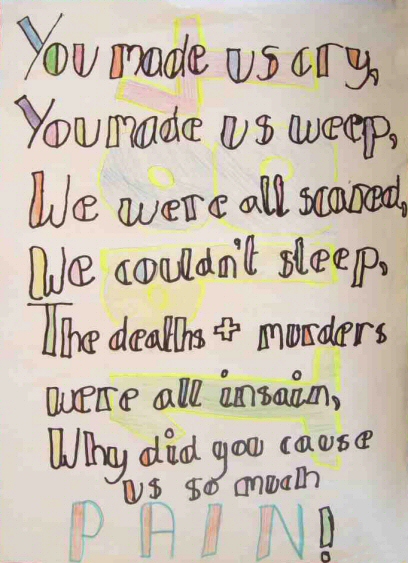 You made us cry,
You made us weep,
We were all scared,
We couldn't sleep,
The deaths + murders
were all insain,
Why did you cause
us so much
PAIN!
1984